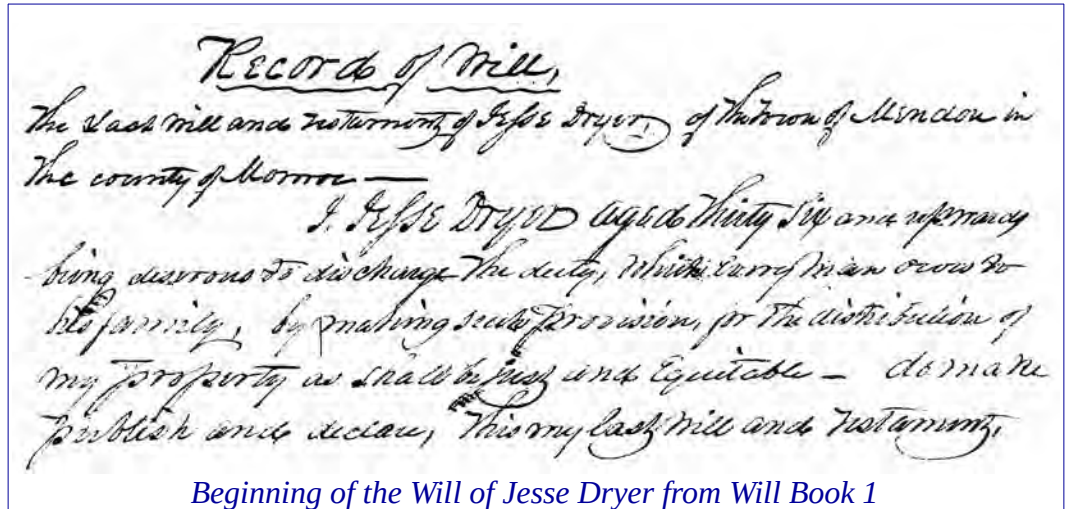 Record of Will,
The Last Will and Testament of Jesse Dryer, of the Town of Mendon in
the county of Monroe —
I, Jesse Dryer aged Thirty Six and upwards
being desirous to discharge the duty, which every man owes to
his family, by making such provision, for the distribution of
my property as shall be just and Equitable — do make
publish and declare, this my last Will and Testament,
Beginning of the Will of Jesse Dryer from Will Book 1